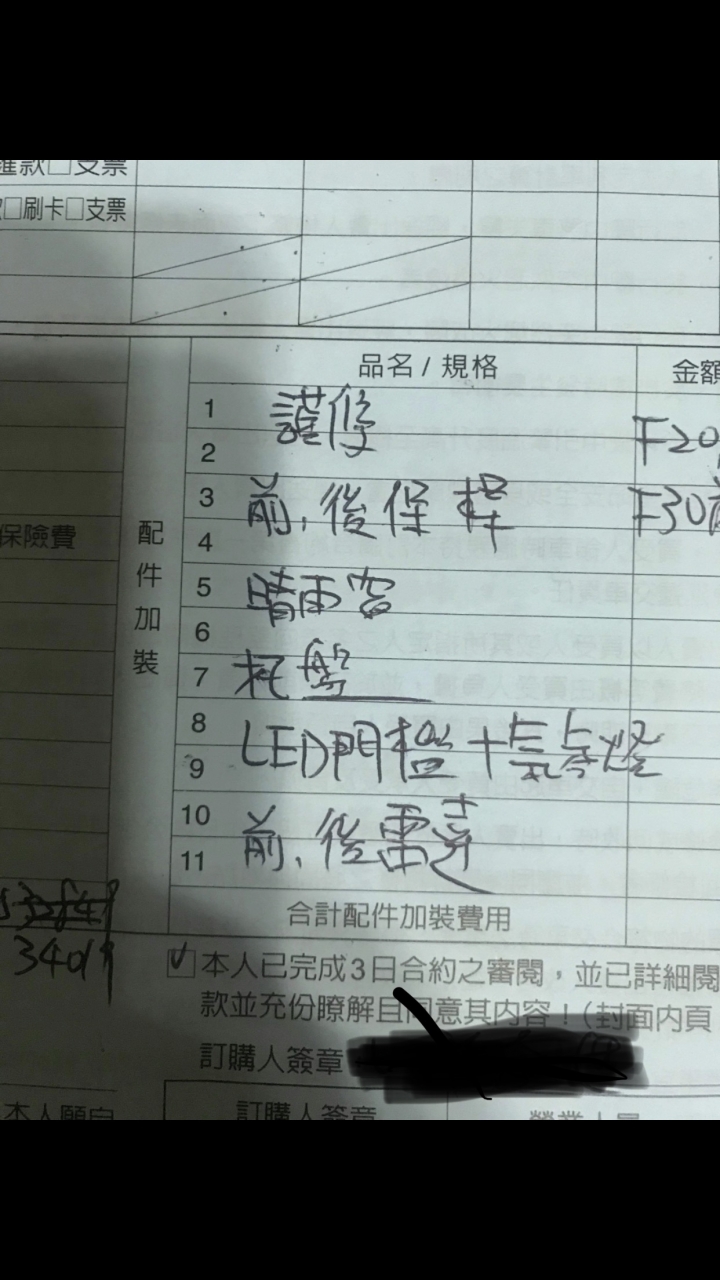 匯款□支票
□刷卡□支票
品名 / 規格 金額
1 護修
2 F20
3 前,後保桿 F30
4
保險費
配件加裝
5 晴雨窗
6
7 托盤
8 LED門檻+氣氛燈
9
10 前,後雷達
11
合計配件加裝費用
340
本人已完成3日合約之審閱,並已詳細閱
款並充份瞭解且同意其內容!(封面內頁
訂購人簽章
本人願向 訂購人簽章 營業人員